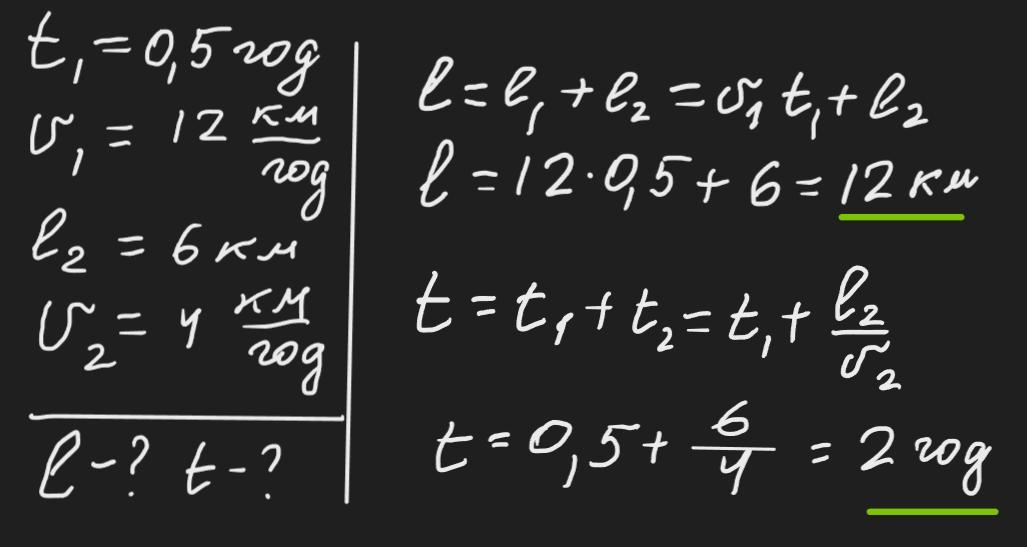 t₁ = 0,5 год
υ₁ = 12 км/год
l₂ = 6 км
υ₂ = 4 км/год
l - ? t - ?
l = l₁ + l₂ = υ₁ t₁ + l₂
l = 12 · 0,5 + 6 = 12 км
t = t₁ + t₂ = t₁ + l₂/υ₂
t = 0,5 + 6/4 = 2 год